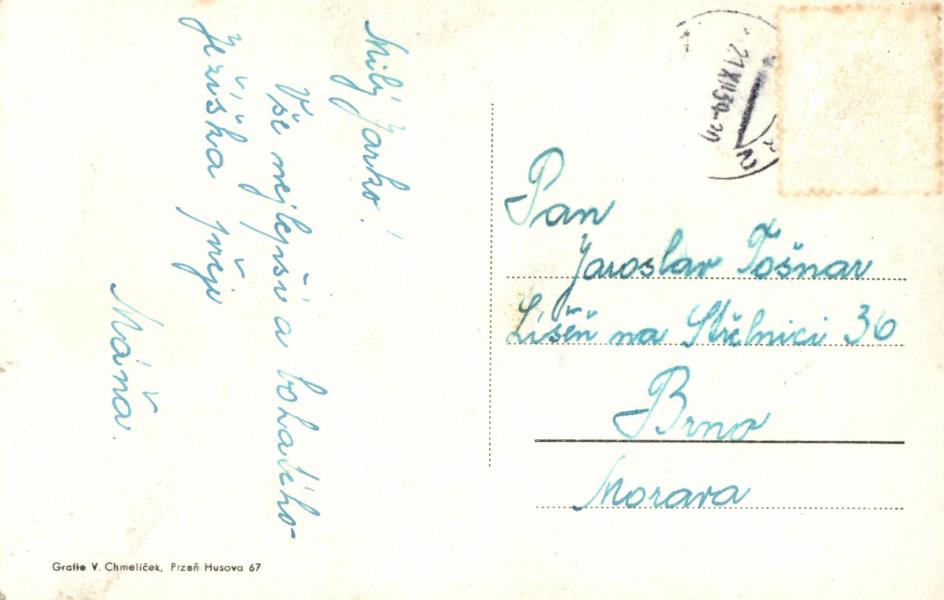 Milý Jarko!
Vše nejlepší a bohatého
Ježíška přeje
Máňa.
21.XII.39-20
Pan
Jaroslav Tošnar
Líšeň na Střelnici 36
Brno
Morava
Grafie V. Chmelíček, Plzeň Husova 67